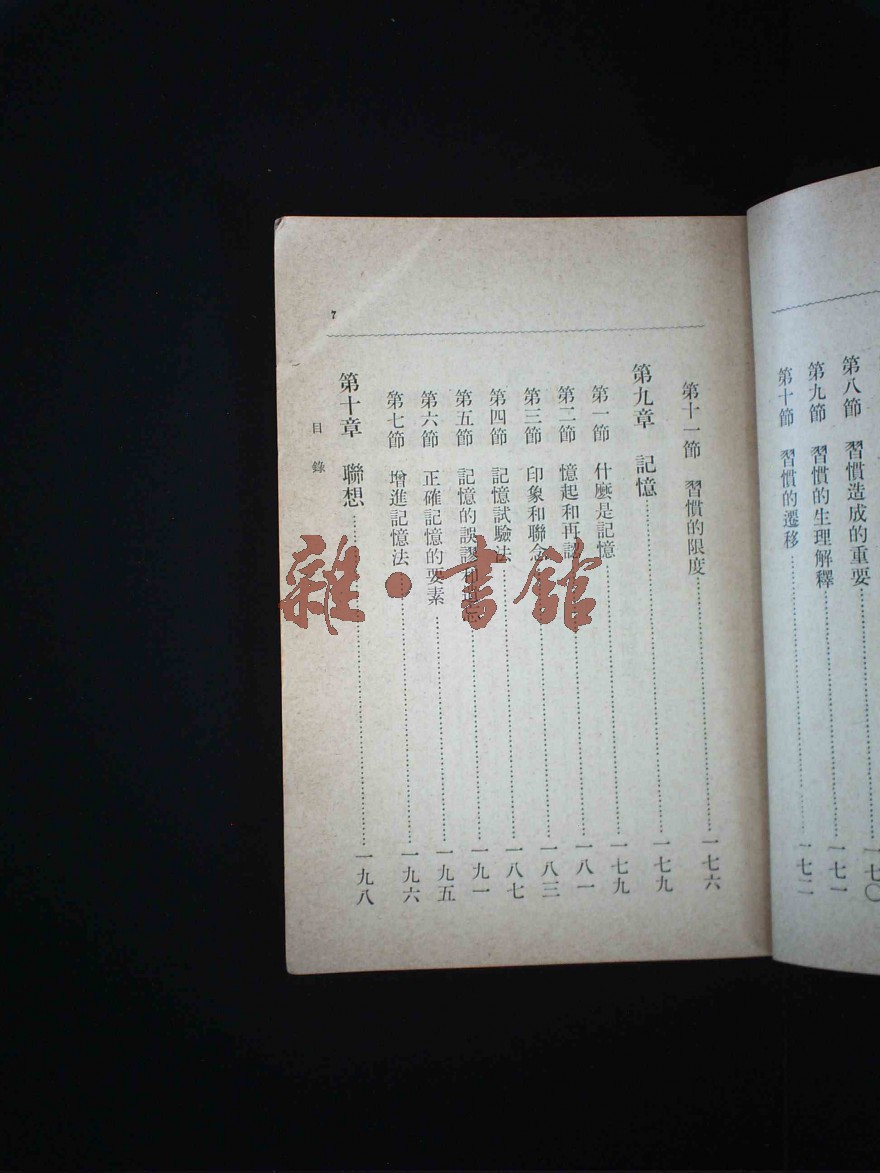 第八節 習慣造成的重要 一七〇
第九節 習慣的生理解釋 一七一
第十節 習慣的遷移 一七二
7
第十一節 習慣的限度 一七六
第九章 記憶 一七九
第一節 什麼是記憶 一七九
第二節 憶起和再認 一八一
第三節 印象和聯念 一八三
第四節 記憶試驗法 一八七
第五節 記憶的誤謬和 一九一
第六節 正確記憶的要素 一九五
第七節 增進記憶法 一九六
第十章 聯想 一九八
目錄
雜·書館